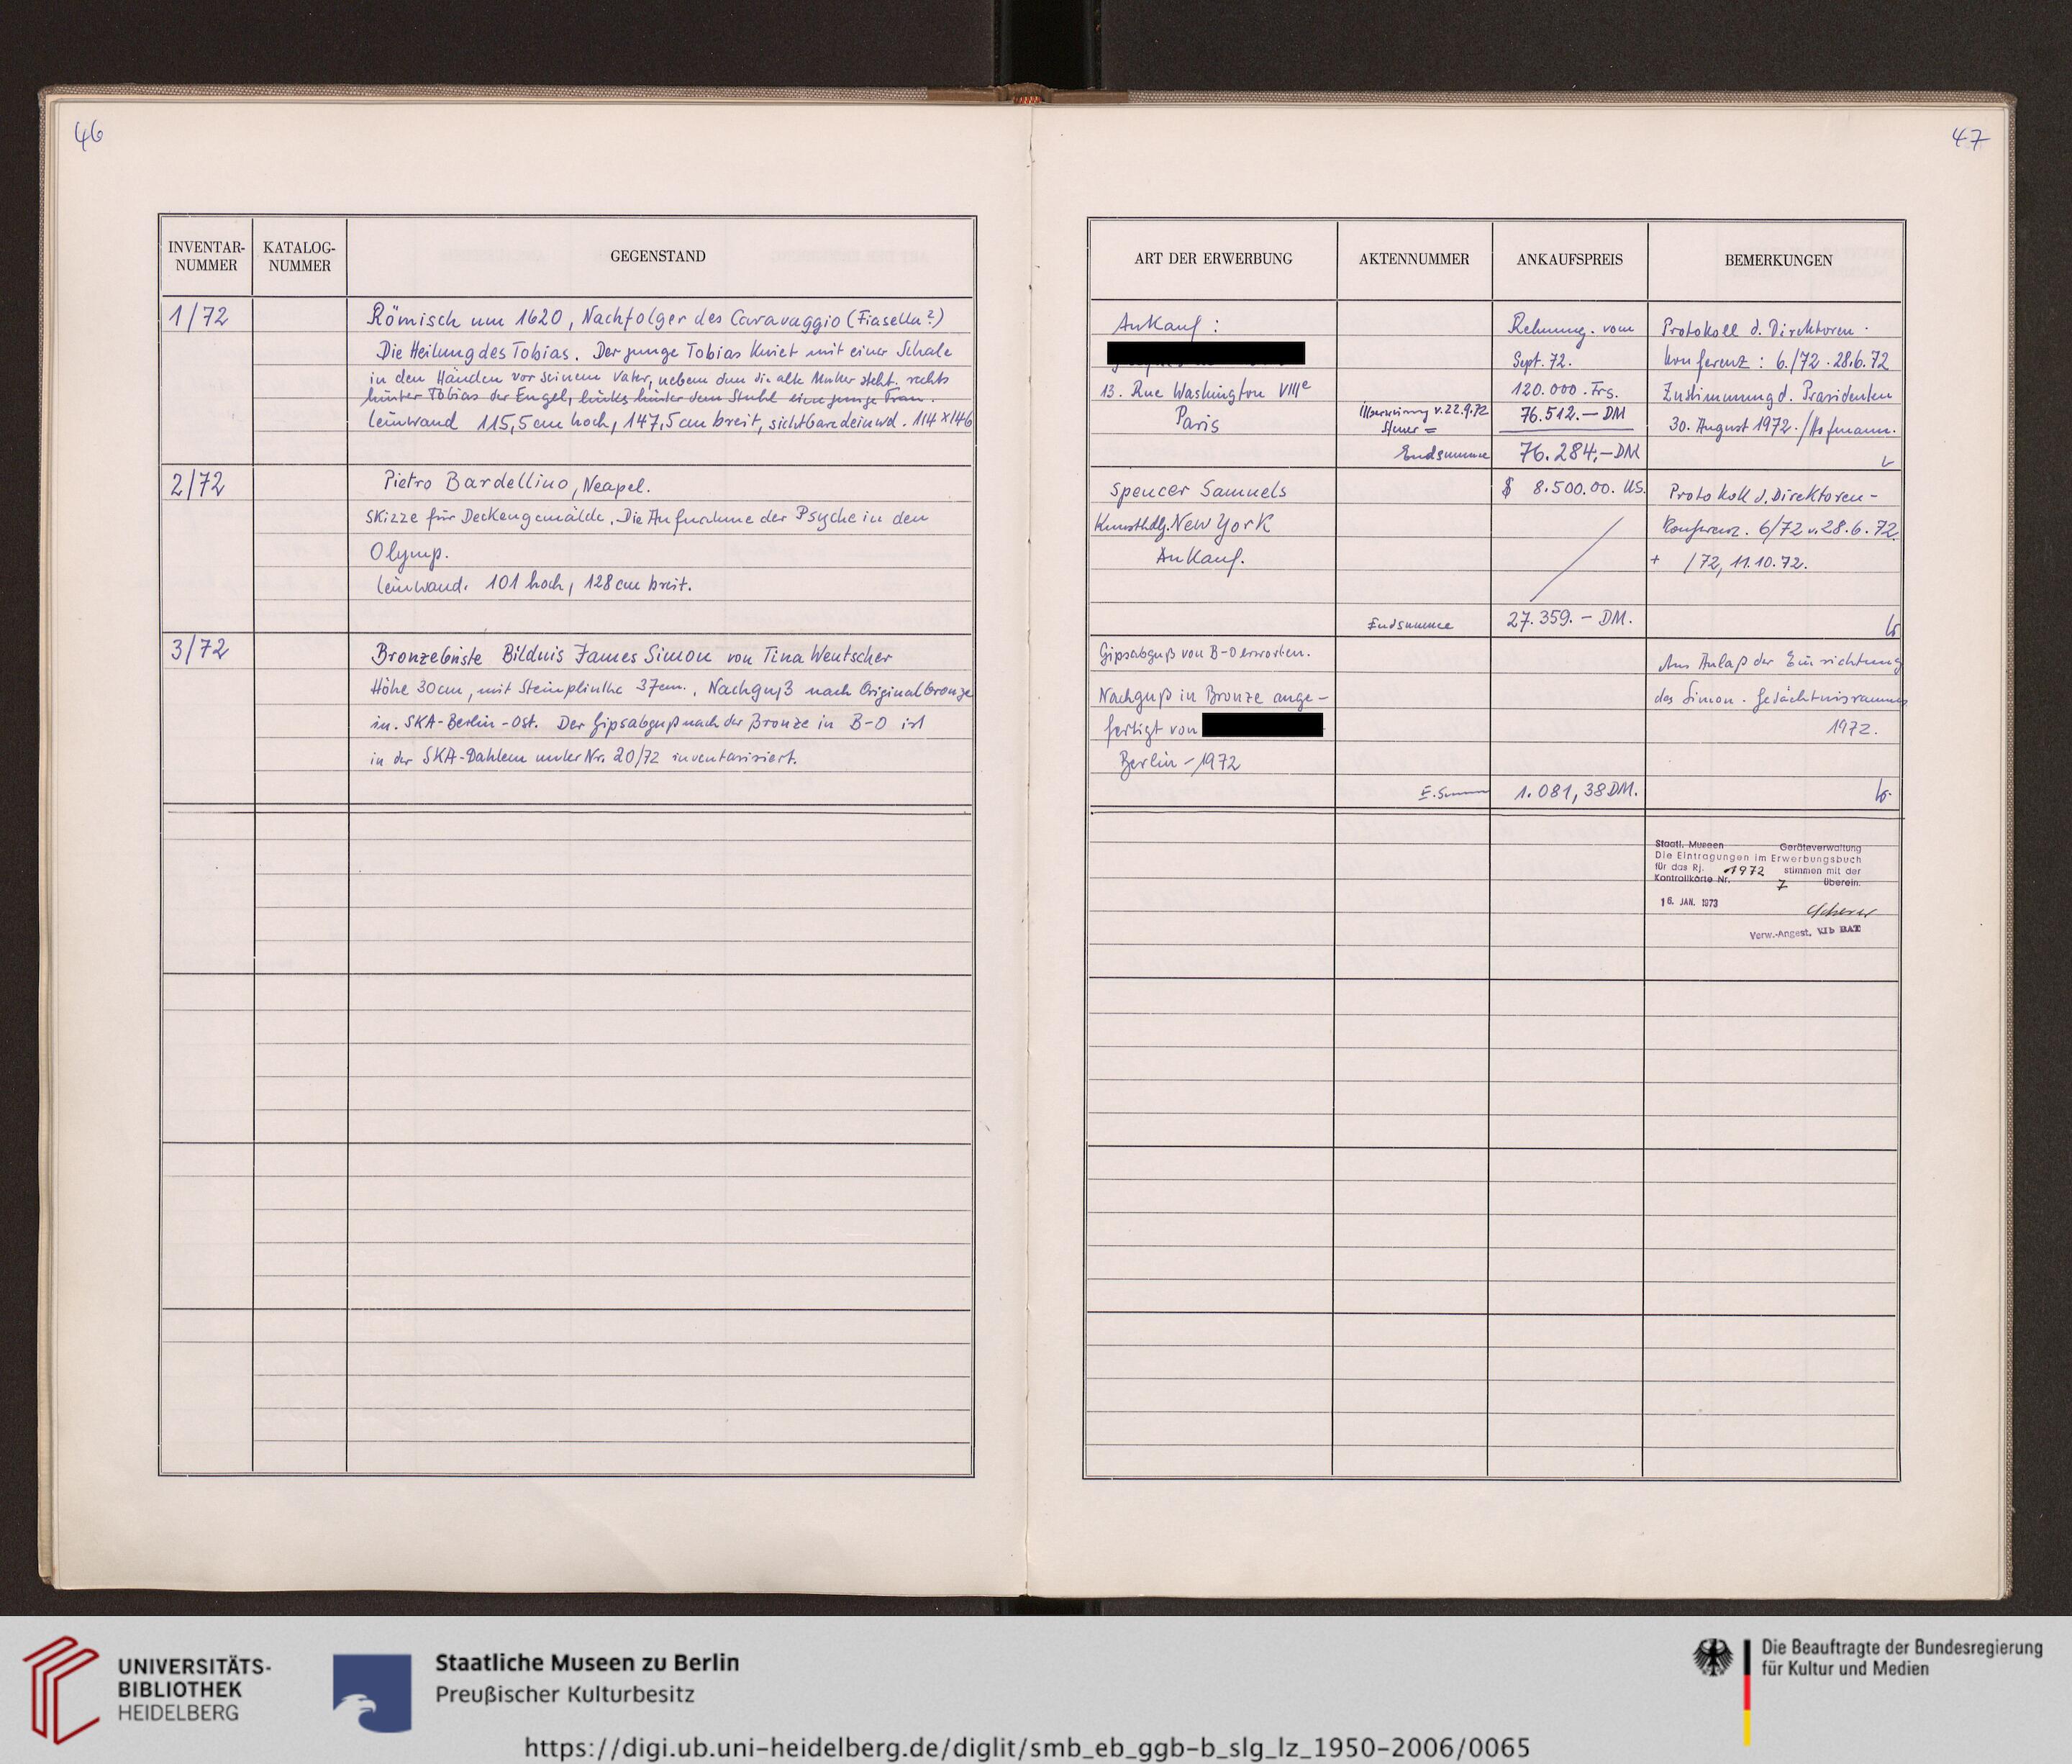 46
INVENTAR-
NUMMER
KATALOG-
NUMMER
GEGENSTAND
1/72
Römisch um 1620, Nachfolger des Caravaggio (Fiasella?)
Die Heilung des Tobias. Der junge Tobias kniet mit einer Schale
in den Händen vor seinem Vater, neben dem die alte Mutter steht. rechts
hinter Tobias der Engel, links hinter dem Stuhl eine junge Frau.
Leinwand 115,5 cm hoch, 147,5 cm breit, sichtbare Leinwd. 114 x 146
2/72
Pietro Bardellino, Neapel.
Skizze für Deckengemälde. Die Aufnahme der Psyche in den
Olymp.
Leinwand. 101 hoch, 128 cm breit.
3/72
Bronzebüste Bildnis James Simon von Tina Wentscher
Höhe 30 cm, mit Steinplinthe 37 cm., Nachguß nach Originalbronze
in. SKA-Berlin-Ost. Der Gipsabguß nach der Bronze in B-O ist
in der SKA-Dahlem unter Nr. 20/72 inventarisiert.
47
ART DER ERWERBUNG
AKTENNUMMER
ANKAUFSPREIS
BEMERKUNGEN
Ankauf :
13. Rue Washington VIIIe
Paris
Überweisung v. 22.9.72
Steuer =
Endsumme
Rechnung. vom
Sept. 72.
120.000. Frs.
76.512.— DM
76.284,— DM
Protokoll d. Direktoren-
konferenz : 6./72. 28.6.72
Zustimmung d. Präsidenten
30. August 1972. / Hofmann.
Spencer Samuels
Kunsthdlg. New York
Ankauf.
Endsumme
$ 8.500.00. US.
27.359.— DM.
Protokoll d. Direktoren-
Konferenz. 6/72 v. 28.6.72.
+ /72, 11.10.72.
Gipsabguß von B-O erworben.
Nachguß in Bronze ange-
fertigt von
Berlin - 1972
E. Summe
1.081,38 DM.
Aus Anlaß der Einrichtung
des Simon-Gedächtnisraumes
1972.
Staatl. Museen Geräteverwaltung
Die Eintragungen im Erwerbungsbuch
für das Rj. 1972 stimmen mit der
Kontrollkarte Nr. 7 überein.
16. JAN. 1973
Verw.-Angest. VIb BAT
UNIVERSITÄTS-
BIBLIOTHEK
HEIDELBERG
Staatliche Museen zu Berlin
Preußischer Kulturbesitz
Die Beauftragte der Bundesregierung
für Kultur und Medien
https://digi.ub.uni-heidelberg.de/diglit/smb_eb_ggb-b_slg_lz_1950-2006/0065